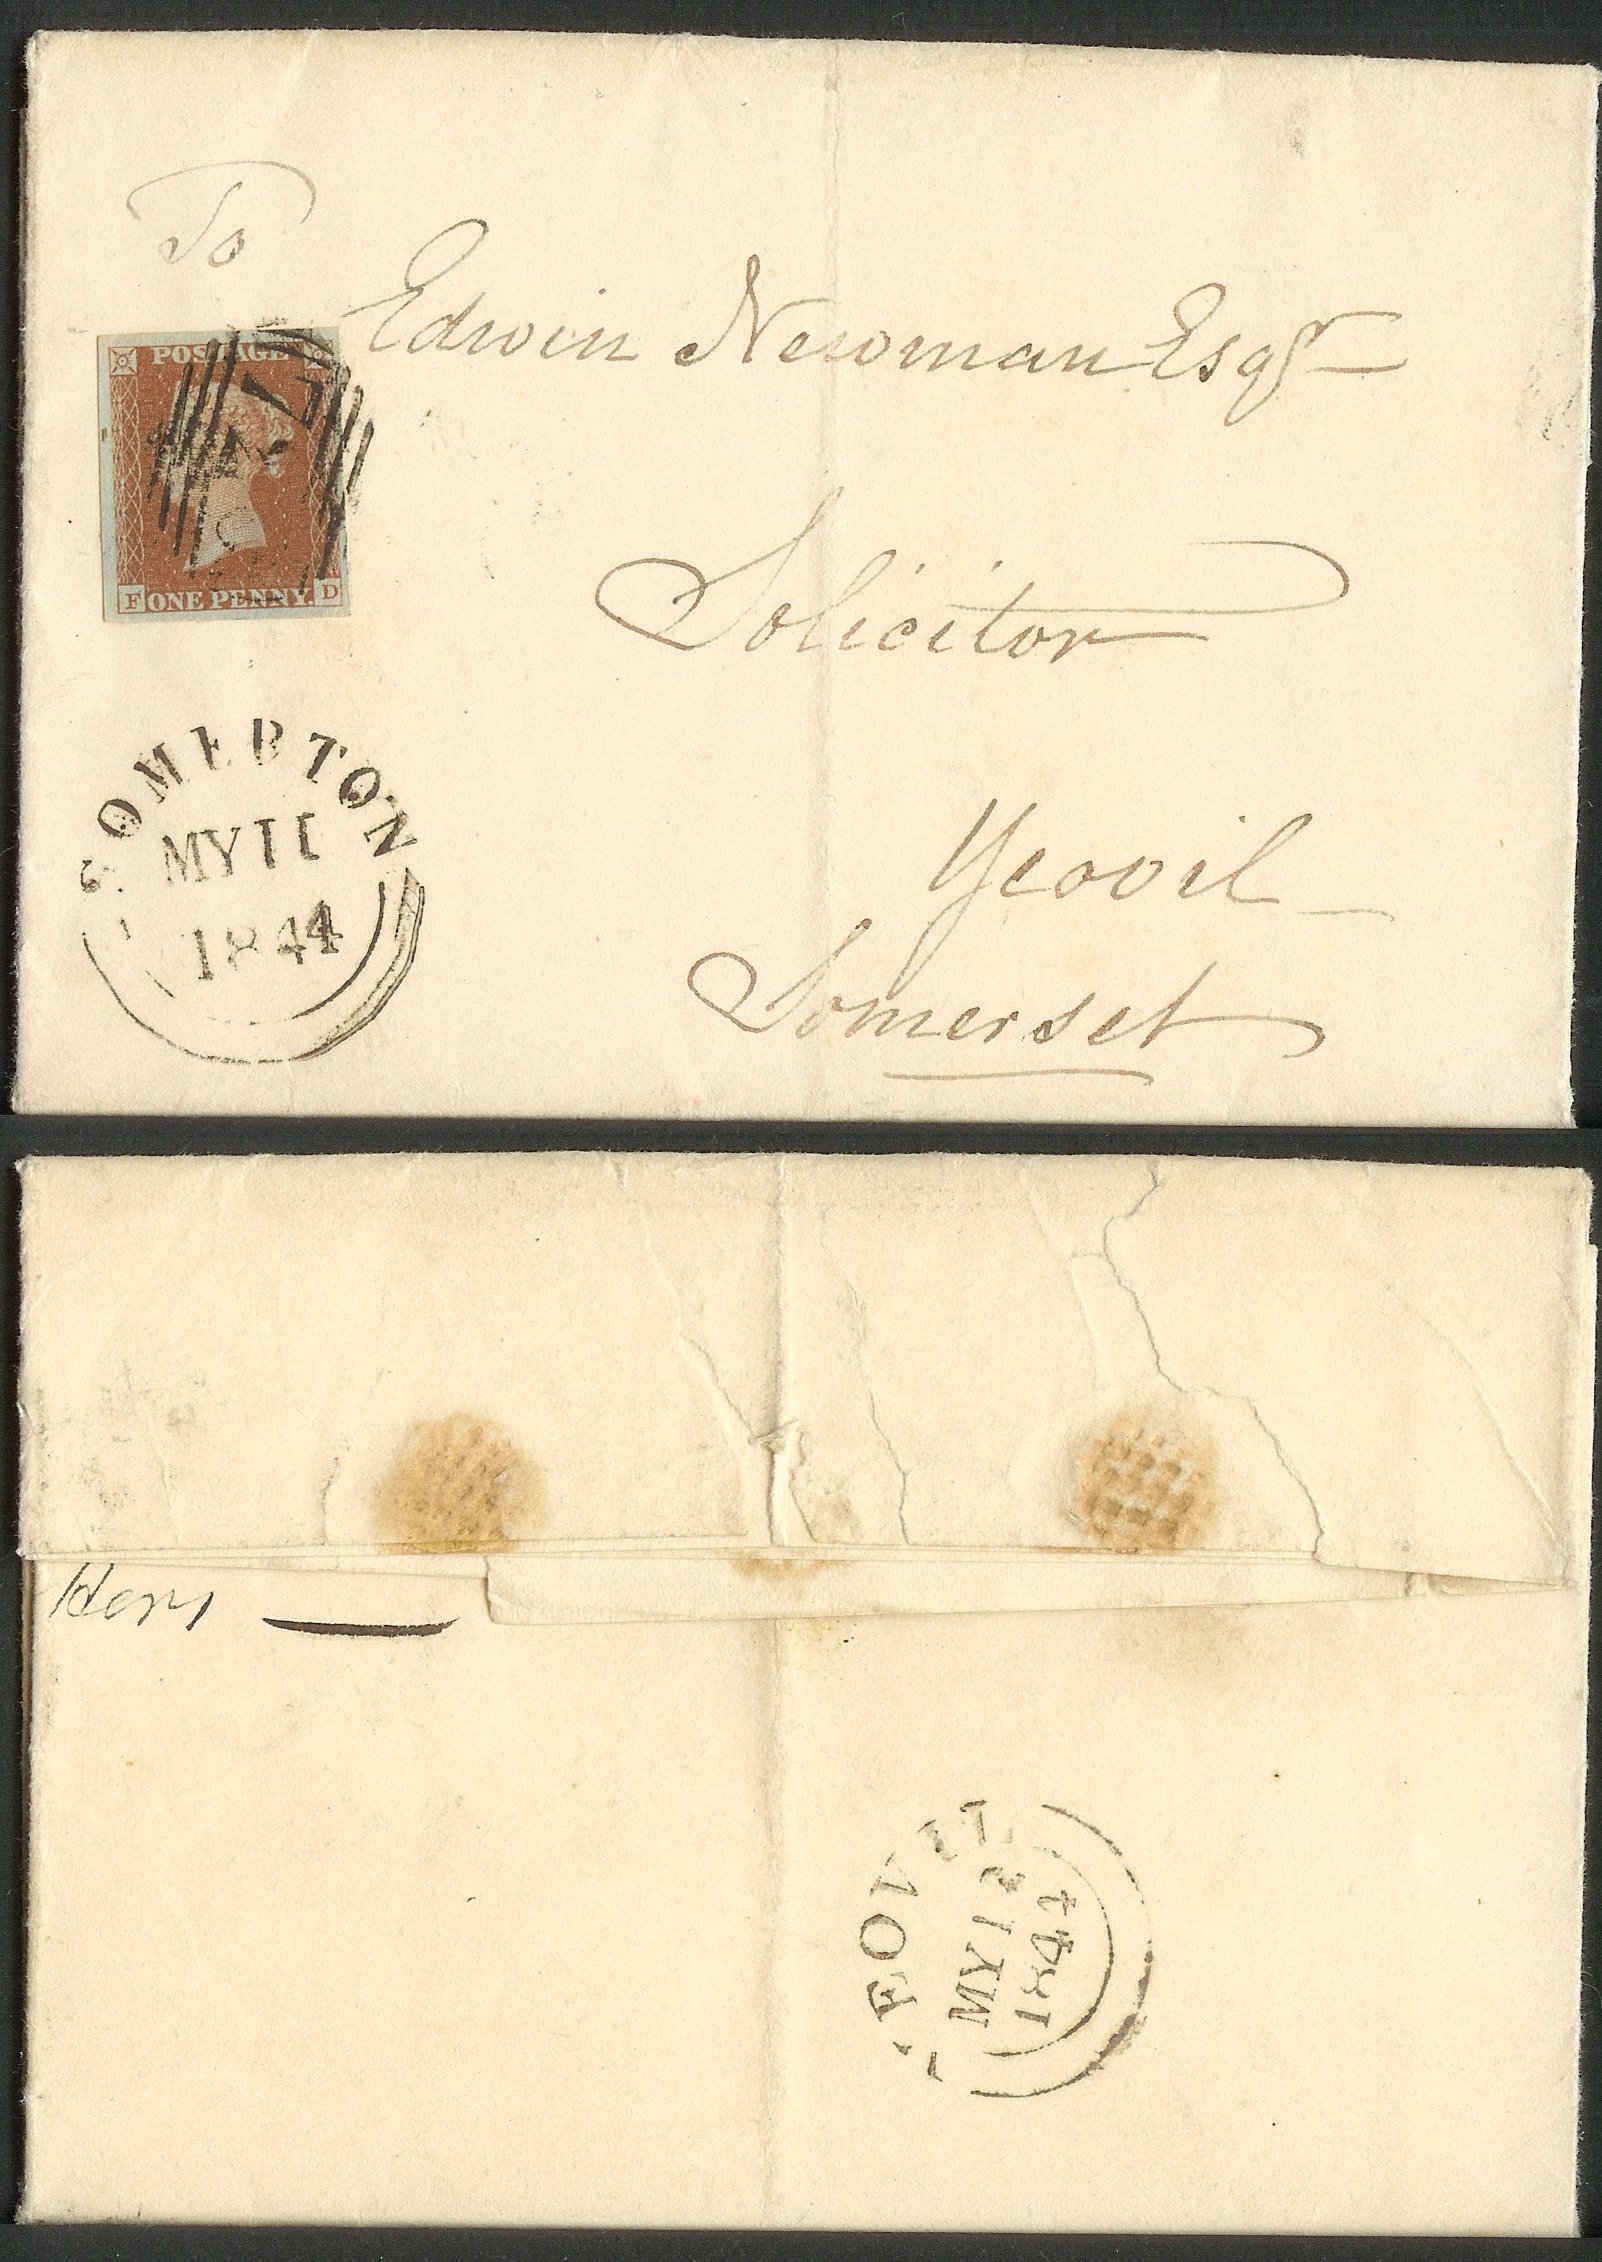 To
Edwin Newman Esqr
POSTAGE
F ONE PENNY. D
Solicitor
SOMERTON
MY 11
1844
Yeovil
Somerset
YEOVIL
MY 12
1844